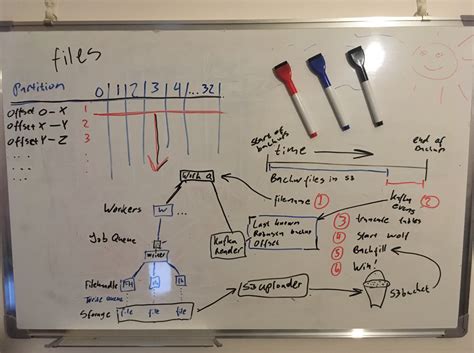 files
Partition
0 | 1 | 2 | 3 | 4 | ... 32 |
Offset 0 - X 1
Offset X - Y 2
Offset Y - Z 3
start of backups
end of backups
time
Backup files in S3
Work Q
filename 1
Kafka 2
Workers W ...
Last known
Offset
3 truncate tables
4 Start
5 Backfill
6 Win!
Job Queue
Kafka
Reader
Filehandle FH
Storage file file file
S3 uploader
S3 bucket